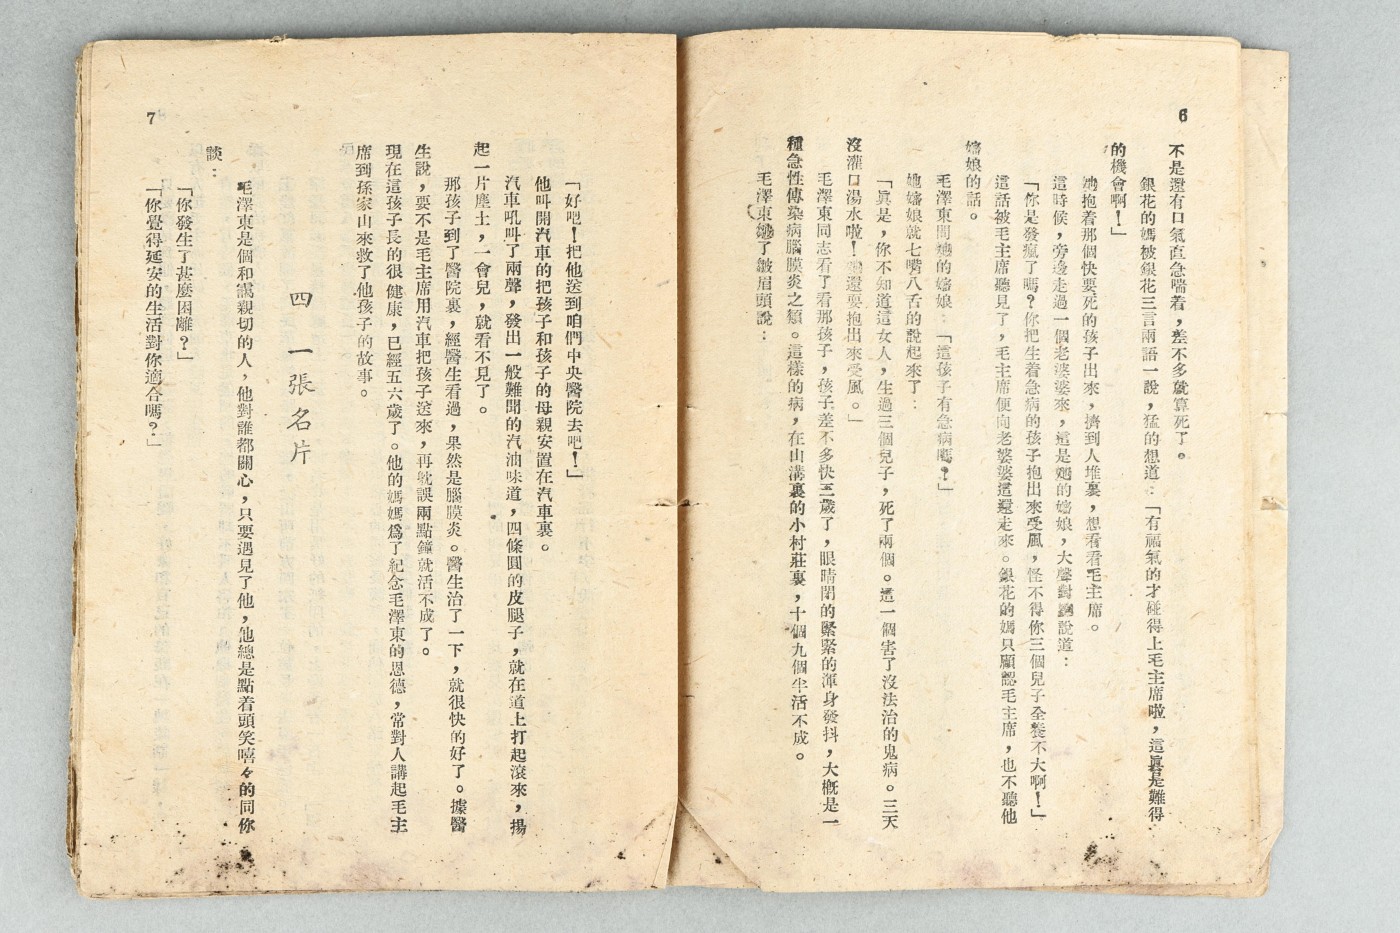 6
不是還有口氣直急喘着，差不多就算死了。
銀花的媽被銀花三言兩語一說，猛的想道：「有福氣的才碰得上毛主席啦，這眞是難得
的機會啊！」
她抱着那個快要死的孩子出來，擠到人堆裏，想看看毛主席。
這時候，旁邊走過一個老婆婆來，這是她的嬸娘，大聲對她說道：
「你是發瘋了嗎？你把生着急病的孩子抱出來受風，怪不得你三個兒子全養不大啊！」
這話被毛主席聽見了，毛主席便向老婆婆這邊走來。銀花的媽只顧認毛主席，也不聽他
嬸娘的話。
毛澤東問她的嬸娘：「這孩子有急病嗎？」
她嬸娘就七嘴八舌的說起來了：
「眞是，你不知道這女人，生過三個兒子，死了兩個。這一個害了沒法治的鬼病。三天
沒灌口湯水啦！她還要抱出來受風。」
毛澤東同志看了看那孩子，孩子差不多快三歲了，眼睛閉的緊緊的渾身發抖，大槪是一
種急性傳染病腦膜炎之類。這樣的病，在山溝裏的小村莊裏，十個九個半活不成。
毛澤東皺了皺眉頭說：
7
「好吧！把他送到咱們中央醫院去吧！」
他叫開汽車的把孩子和孩子的母親安置在汽車裏。
汽車吼叫了兩聲，發出一般難聞的汽油味道，四條圓的皮腿子，就在道上打起滾來，揚
起一片塵土，一會兒，就看不見了。
那孩子到了醫院裏，經醫生看過，果然是腦膜炎。醫生治了一下，就很快的好了。據醫
生說，要不是毛主席用汽車把孩子送來，再躭誤兩點鐘就活不成了。
現在這孩子長的很健康，已經五六歲了。他的媽媽爲了紀念毛澤東的恩德，常對人講起毛主
席到孫家山來救了他孩子的故事。
四 一張名片
毛澤東是個和靄親切的人，他對誰都關心，只要遇見了他，他總是點着頭笑嘻々的同你
談：
「你發生了甚麼困離？」
「你覺得延安的生活對你適合嗎？」